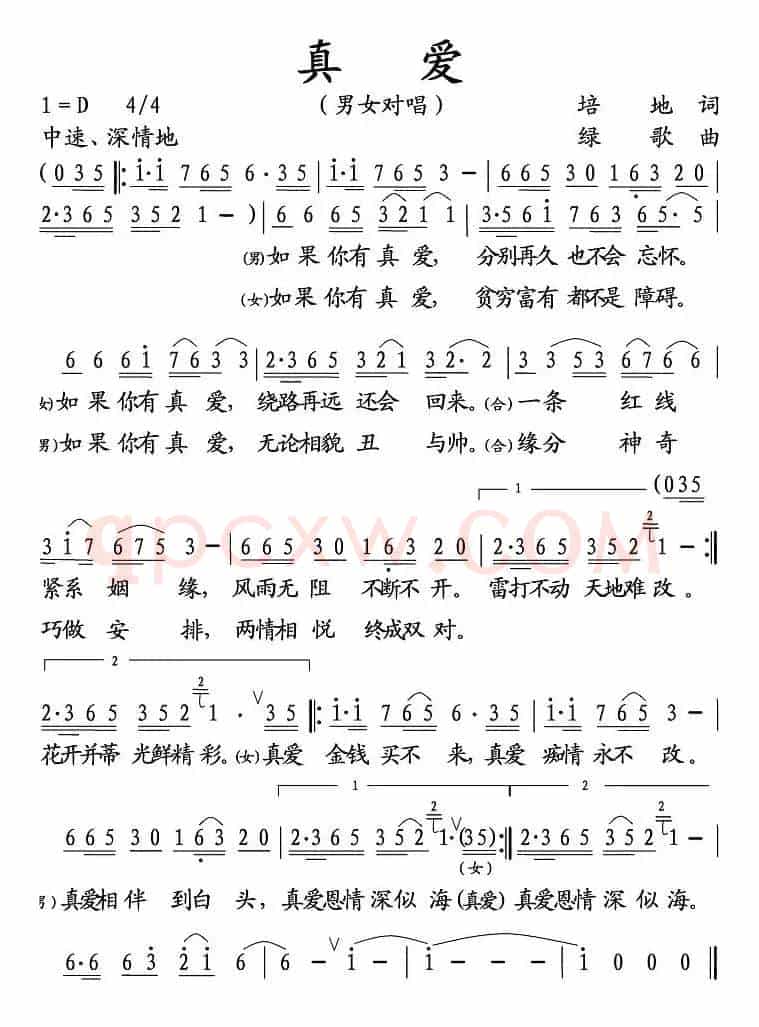 真 爱
1=D 4/4 （男女对唱） 培 地 词
中速、深情地 绿 歌 曲
(035 ‖: i·i 765 6·35 | i·i 765 3 – | 665 30 163 20 |
2·365 352 1 – ) | 6 6 65 321 1 | 3·561 763 65· 5 |
(男)如果你有真爱, 分别再久也不会忘怀。
(女)如果你有真爱, 贫穷富有都不是障碍。
6 6 6i 763 3 | 2·365 321 32· 2 | 3 3 53 676 6 |
女)如果你有真爱, 绕路再远还会回来。(合)一条红线
男)如果你有真爱, 无论相貌丑与帅。(合)缘分神奇
1 (035
3 i7 675 3 | 665 30 163 20 | 2·365 352 2 1 – :‖
紧系姻缘, 风雨无阻不断不开。雷打不动天地难改。
巧做安排, 两情相悦终成双对。
2
2·365 352 2 1 · ∨ 35 ‖: i·i 765 6·35 | i·i 765 3 – |
花开并蒂光鲜精彩。(女)真爱金钱买不来, 真爱痴情永不改。
1 2
665 30 163 20 | 2·365 352 2 1·∨(35) :‖ 2·365 352 2 1 – |
(女)
男)真爱相伴到白头, 真爱恩情深似海(真爱)真爱恩情深似海。
6·6 63 2i | 6 – ∨ i – | i – – – | i 0 0 0 ‖
qpcxw.COM